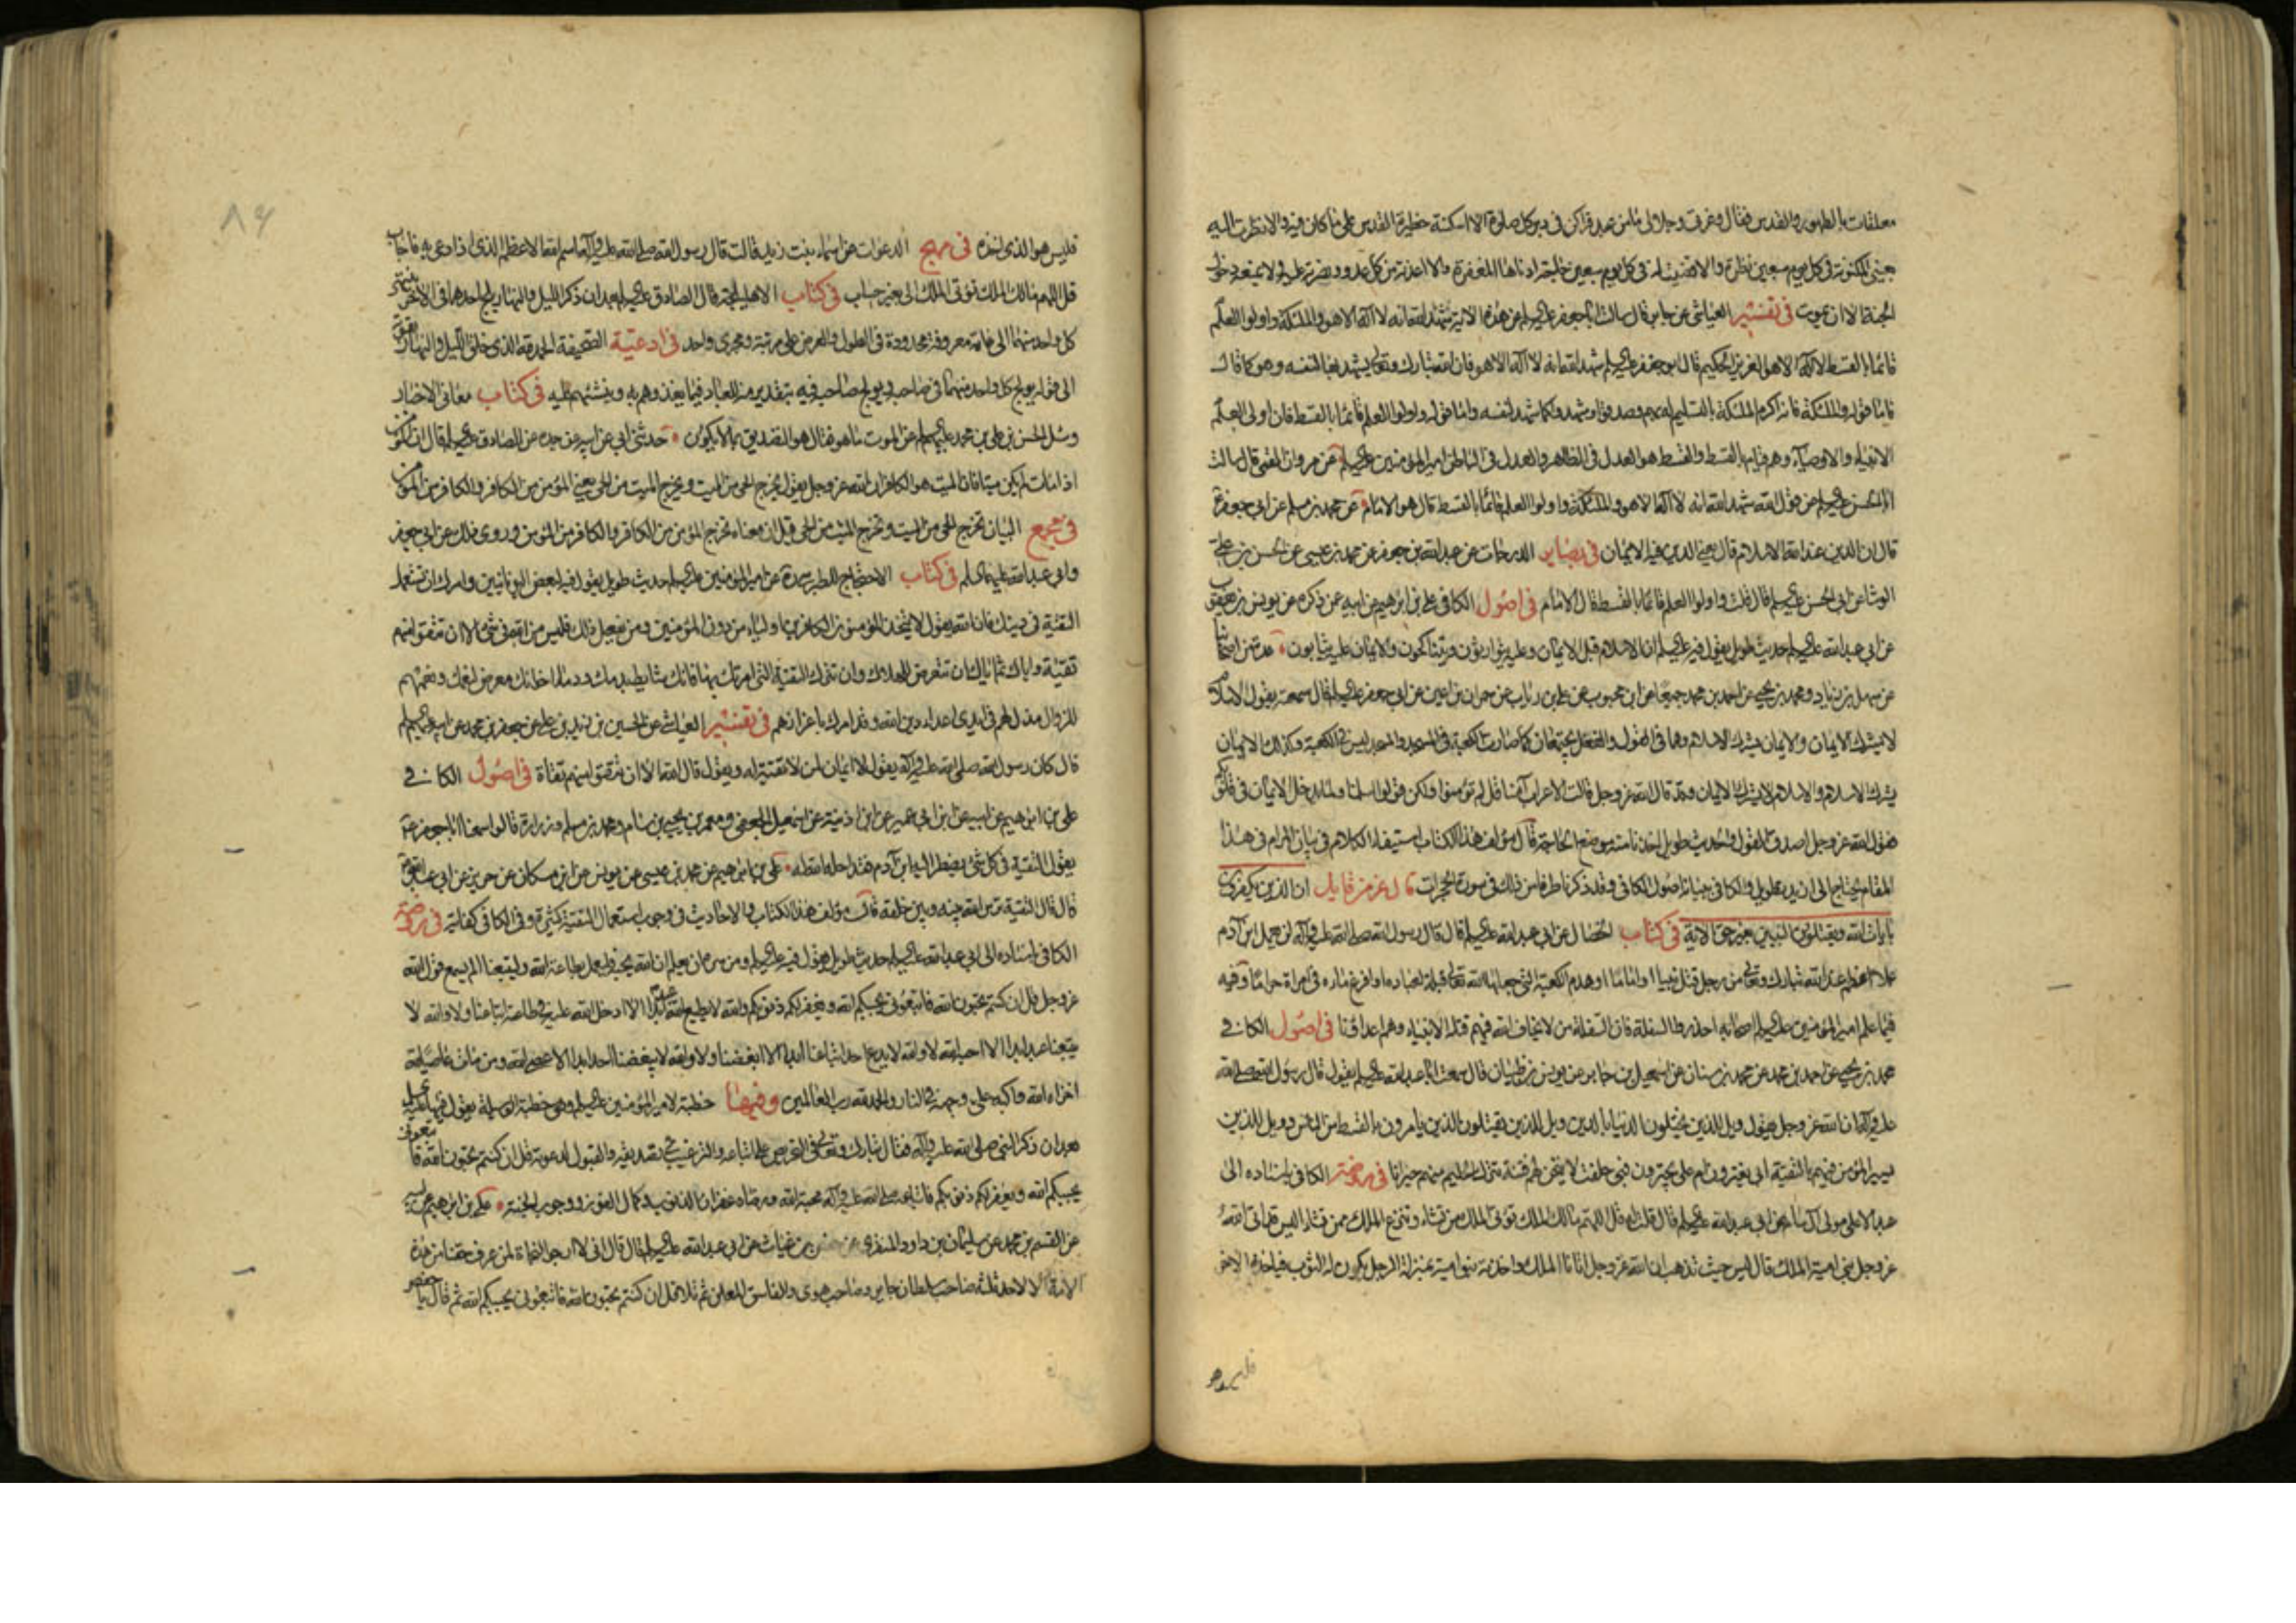 معلقات بالطهور والقدس فقال وعزتى وجلالى ما من عبد قراكن فى دبر كل صلوة الا اسكنته حظيرة القدس على ما كان فيه والا نظرت اليه
بعينى المكنونة فى كل يوم سبعين نظرة والا قضيت له فى كل يوم سبعين حاجة ادناها المغفرة والا اعذته من كل عدو ونصرته عليه ولا يمنعه دخول
الجنة الا ان يموت فى تفسير العياشى عن جابر قال سالت ابا جعفر عليه السلم عن هذه الاية شهد الله انه لا اله الا هو والملئكة واولوا العلم
قائما بالقسط لا اله الا هو العزيز الحكيم قال ابو جعفر عليه السلم شهد الله انه لا اله الا هو فان الله تبارك وتعالى يشهد بها لنفسه وهو كما قال
فاما قوله والملئكة فانه اكرم الملئكة بالتسليم لربهم وصدقوا وشهدوا كما شهد لنفسه واما قوله واولوا العلم قائما بالقسط فان اولى العلم
الانبياء والاوصياء وهم قيام بالقسط والقسط هو العدل فى الظاهر والعدل فى الباطن امير المؤمنين عليه السلم عن مروان القمى قال سالت
ابا الحسن عليه السلم عن قول الله شهد الله انه لا اله الا هو والملئكة واولوا العلم قائما بالقسط قال هو الامام عن محمد بن مسلم عن ابى جعفر
قال ان الدين عند الله الاسلام قال يعنى الدين فيه الايمان فى بصاير الدرجات عن عبد الله بن جعفر عن محمد بن عيسى عن الحسن بن على
الوشا عن ابى الحسن عليه السلم قال قلت واولوا العلم قائما بالقسط قال الامام فى اصول الكافى على بن ابرهيم عن ابيه عمن ذكره عن يونس بن يعقوب
عن ابى عبد الله عليه السلم حديث طويل يقول فيه عليه السلم ان الاسلام قبل الايمان وعليه يتوارثون ويتناكحون والايمان عليه يثابون عدة من اصحابنا
عن سهل بن زياد ومحمد بن يحيى عن احمد بن محمد جميعا عن ابن محبوب عن على بن رئاب عن حمران بن اعين عن ابى جعفر عليه السلم قال سمعته يقول الاسلام
لا يشرك الايمان والايمان يشرك الاسلام وهما فى القول والفعل يجتمعان كما صارت الكعبة فى المسجد والمسجد ليس فى الكعبة وكذلك الايمان
يشرك الاسلام والاسلام لا يشرك الايمان وقد قال الله عز وجل قالت الاعراب آمنا قل لم تؤمنوا ولكن قولوا اسلمنا ولما يدخل الايمان فى قلوبكم
فقول الله عز وجل اصدق القول والحديث طويل اخذنا منه موضع الحاجة قال مؤلف هذا الكتاب استيفاء الكلام فى بيان المرام فى هذا
المقام يحتاج الى ازيد تطويل والكافى جنانه اصول الكافى وقد ذكرنا طرفا من ذلك فى سورة الحجرات قال عز من قايل ان الذين يكفرون
بايات الله ويقتلون النبيين بغير حق الاية فى كتاب الخصال عن ابى عبد الله عليه السلم قال قال رسول الله صلى الله عليه وآله لن يعمل ابن آدم
عملا اعظم عند الله تبارك وتعالى من رجل قتل نبيا او اماما او هدم الكعبة التى جعلها الله تعالى قبلة لعباده او افرغ ماءه فى امراة حراما وفيه
فيما علم امير المؤمنين عليه السلم اصحابه احذروا السفلة فان السفلة من لا يخاف الله فيهم قتلة الانبياء وهم اعداؤنا فى اصول الكافى
محمد بن يحيى عن احمد بن محمد عن محمد بن سنان عن اسمعيل بن جابر عن يونس بن ظبيان قال سمعت ابا عبد الله عليه السلم يقول قال رسول الله صلى الله
عليه وآله ان الله عز وجل يقول ويل للذين يختلون الدنيا بالدين وويل للذين يقتلون الذين يامرون بالقسط من الناس وويل للذين
يسير المؤمن فيهم بالتقية ابى يغترون ام على يجترون فبى حلفت لاتيحن لهم فتنة تترك الحليم منهم حيرانا فى روضة الكافى باسناده الى
عبد الاعلى مولى آل سام عن ابى عبد الله عليه السلم قال قلت له قل اللهم مالك الملك تؤتى الملك من تشاء وتنزع الملك ممن تشاء اليس قد اتى الله
عز وجل بنى امية الملك قال ليس حيث تذهب ان الله عز وجل اتانا الملك واخذته بنو امية بمنزلة الرجل يكون له الثوب فياخذه الاخر
فليس هو
فليس هو الذى اخذه فى مهج الدعوات عن اسماء بنت زيد قالت قال رسول الله صلى الله عليه وآله اسم الله الاعظم الذى اذا دعى به فاجاب
قل اللهم مالك الملك تؤتى الملك الى بغير حساب فى كتاب الاهليلجة قال الصادق عليه السلم بعد ان ذكر الليل والنهار يلج احدهما فى الاخر ينتهى
كل واحد منهما الى غاية معروفة محدودة فى الطول والعرض على مرتبة ومجرى واحد فى ادعية الصحيفة الحمد لله الذى خلق الليل والنهار بقوته
الى قوله يولج كل واحد منهما فى صاحبه ويولج صاحبه فيه بتقدير منه للعباد فيما يغذوهم به وينشئهم عليه فى كتاب معانى الاخبار
وسئل الحسن بن على بن محمد عليهم السلم عن الموت ما هو فقال هو التصديق بما لا يكون حدثنى ابى عن ابيه عن جده عن الصادق عليه السلم قال ان المؤمن
اذا مات لم يكن ميتا فان الميت هو الكافر ان الله عز وجل يقول يخرج الحى من الميت ويخرج الميت من الحى يعنى المؤمن من الكافر والكافر من المؤمن
فى مجمع البيان تخرج الحى من الميت وتخرج الميت من الحى قيل ان معناه تخرج المؤمن من الكافر والكافر من المؤمن وروى ذلك عن ابى جعفر
وابى عبد الله عليهما السلم فى كتاب الاحتجاج للطبرسى ره عن امير المؤمنين عليه السلم حديث طويل يقول فيه لبعض اليونانيين وامرك ان تستعمل
التقية فى دينك فان الله يقول لا يتخذ المؤمنون الكافرين اولياء من دون المؤمنين ومن يفعل ذلك فليس من الله فى شئ الا ان تتقوا منهم
تقية واياك ثم اياك ان تتعرض للهلاك وان تترك التقية التى امرتك بها فانك شايط بدمك ودماء اخوانك معرض لنعمك ونعمهم
للزوال مذل لهم فى ايدى اعداء دين الله وقد امرك باعزازهم فى تفسير العياشى عن الحسين بن زيد بن على عن جعفر بن محمد عن ابيه عليهم السلم
قال كان رسول الله صلى الله عليه وآله يقول لا ايمان لمن لا تقية له ويقول قال الله الا ان تتقوا منهم تقاة فى اصول الكافى
على بن ابرهيم عن ابيه عن ابن ابى عمير عن ابن اذينة عن اسمعيل الجعفى ومعمر بن يحيى بن سام ومحمد بن مسلم وزرارة قالوا سمعنا ابا جعفر عليه
يقول التقية فى كل شئ يضطر اليه ابن آدم فقد احله الله له على بن ابرهيم عن محمد بن عيسى عن يونس عن ابن مسكان عن حريز عن ابى عبد الله
قال قال التقية ترس الله بينه وبين خلقه قال مؤلف هذا الكتاب والاحاديث فى وجوب استعمال التقية كثيرة وفى الكافى كفاية فى روضة
الكافى باسناده الى ابى عبد الله عليه السلم حديث طويل يقول فيه عليه السلم ومن سره ان يعلم ان الله يحبه فليعمل بطاعة الله وليتبعنا الم يسمع قول الله
عز وجل قل ان كنتم تحبون الله فاتبعونى يحببكم الله ويغفر لكم ذنوبكم والله لا يطيع الله عبد ابدا الا ادخل الله عليه فى طاعته اتباعنا ولا والله لا
يتبعنا عبد ابدا الا احبه الله لا والله لا يدع احد اتباعنا ابدا الا ابغضنا ولا والله لا يبغضنا احد ابدا الا عصى الله ومن مات عاصيا لله
اخزاه الله واكبه على وجهه فى النار والحمد لله رب العالمين وفيها خطبة لامير المؤمنين عليه السلم وهى خطبة الوسيلة يقول فيها عليه السلم
بعد ان ذكر النبى صلى الله عليه وآله فقال تبارك وتعالى فى التحريص على اتباعه والترغيب فى تصديقه والقبول لدعوته قل ان كنتم تحبون الله فاتبعونى
يحببكم الله ويغفر لكم ذنوبكم فاتباعه صلى الله عليه وآله محبة الله ورضاه غفران الذنوب وكمال الفوز ووجوب الجنة على بن ابرهيم عن ابيه
عن القسم بن محمد عن سليمان بن داود المنقرى عن حفص بن غياث عن ابى عبد الله عليه السلم قال قال انى لارجو النجاة لمن عرف حقنا من هذه
الامة الا لاحد ثلثة صاحب سلطان جاير وصاحب هوى والفاسق المعلن ثم تلا قل ان كنتم تحبون الله فاتبعونى يحببكم الله ثم قال يا حفص